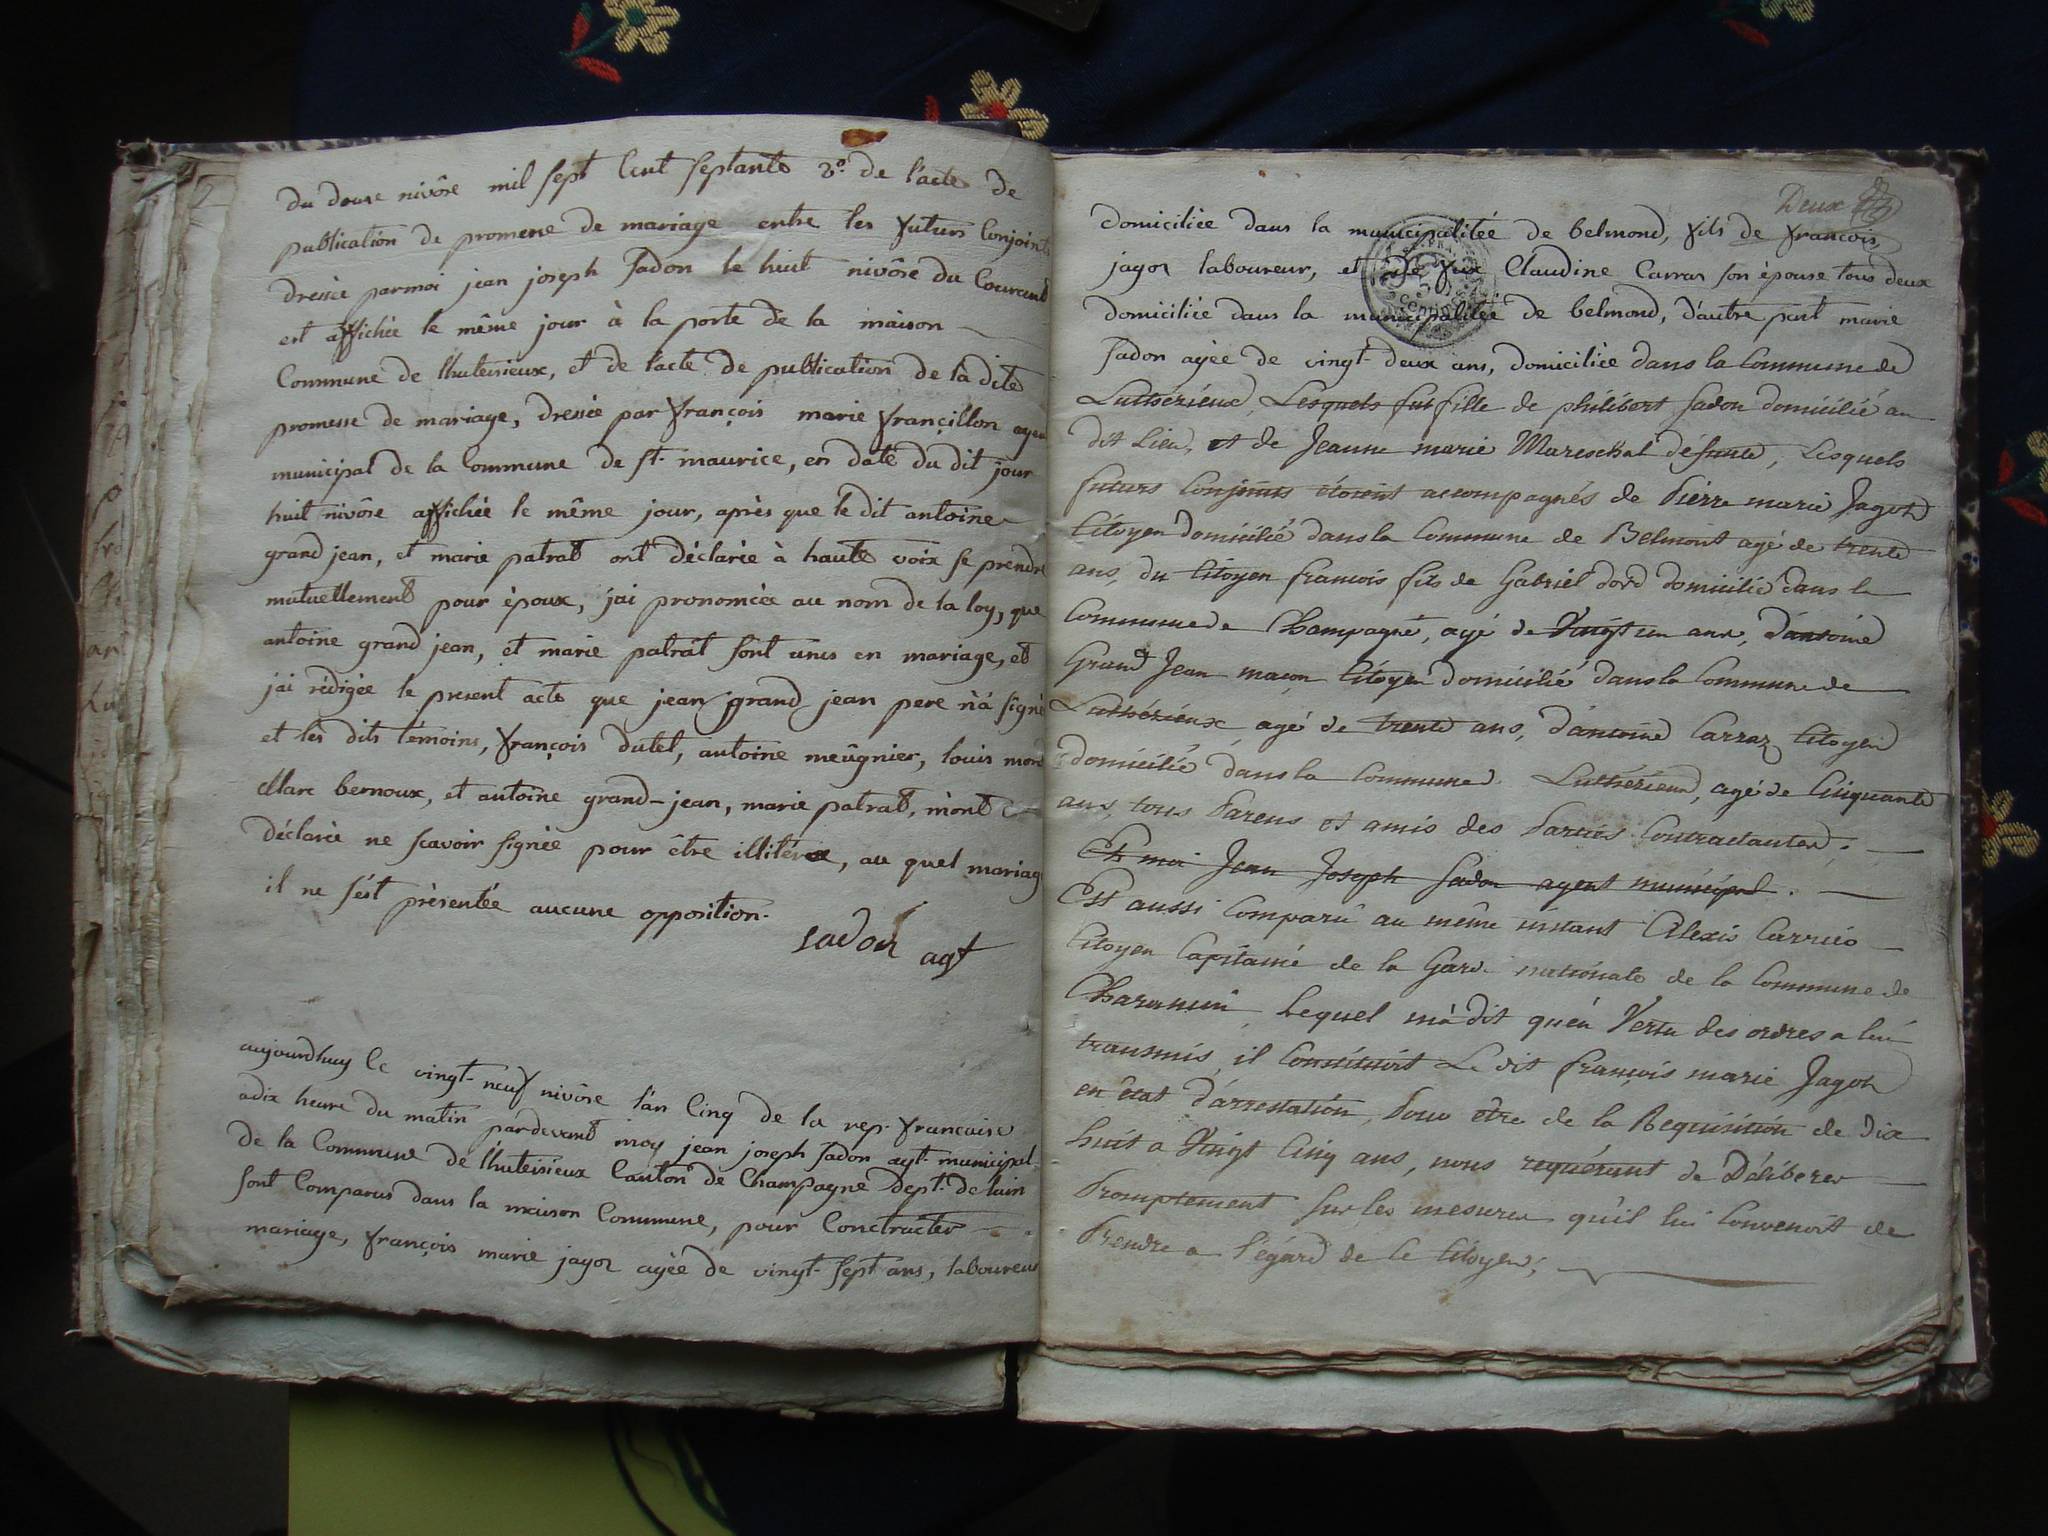 du douse nivôse mil sept Cent septante 2.° de l'acte de
publication de promesse de mariage entre les futurs Conjoints
dressée parmoi jean joseph Sadon le huit nivôse du Courant
est affichée le même jour à la porte de la maison
Commune de lhuteirieux, et de l'acte de publication de la dite
promesse de mariage, dressée par françois marie françillon agen
municipal de la Commune de st. maurice, en date du dit jour
huit nivôse affichée le même jour, après que le dit antoine
grand jean, et marie patrat ont déclarée à haute voix se prendre
mutuellement pour époux, j'ai prononcée au nom de la loy, que
antoine grand jean, et marie patrat sont unis en mariage, et
j'ai rédigée le present acte que jean grand jean pere n'a signé
et les dits témoins, françois dutel, antoine meûgnier, louis
Marc bernoux, et antoine grand-jean, marie patrat, m'ont
déclarée ne scavoir signée pour être illitérée, au quel mariag
il ne s'est présentée aucune opposition.
sadon agt
aujourdhuy le vingt-neuf nivôse l'an Cinq de la rep. française
adix heure du matin pardevant moy jean joseph Sadon agt. municipal
de la Commune de lhuteirieux Canton de Champagne Dept. de lain
sont Comparus dans la maison Commune, pour Conctracter
mariage, françois marie jagot agée de vingt-sept ans, laboureur
Deux
domiciliée dans la municipalitée de belmond, fils de françois,
jagot laboureur, et de feux Claudine Carras son épouse tous deux
domiciliée dans la municipalitée de belmond, d'autre part marie
Sadon agée de vingt-deux ans, domiciliée dans la Commune de
Luthérieux, Lesquels fut fille de philibert Sadon domicilié au
dit Lieu, et de Jeanne marie Mareschal défunte, Lesquels
futurs Conjoints étoient accompagnés de Pierre marie Jagot
Citoyen domicilié dans la Commune de Belmont agé de trente
ans, du Citoyen françois fils de Gabriel dord domicilié dans la
Commune de Champagne, agé de Vingt un ans, d'antoine
Grand Jean maçon Citoyen domicilié dans la Commune de
Luthérieux agé de trente ans, d'antoine Carraz Citoyen
domicilié dans la Commune Luthérieux, agé de Cinquante
ans, tous Parens et amis des Parties Contractantes;
Et moi Jean Joseph Sadon agent municipal.
Est aussi Comparu au même instant Alexis Carrier
Citoyen Capitaine de la Garde nationale de la Commune de
Charancin, Lequel m'a dit qu'en Vertu des ordres a lui
transmis, il Constituoit Le dit françois marie Jagot
en état d'arrestation, Pour être de la Requisition de dix
huit a Vingt Cinq ans, nous requérant de Déliberer
Promptement sur les mesures qu'il lui Convenoit de
Prendre a l'égard de ce Citoyen;